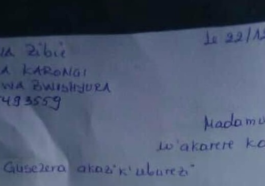 Le 22/12
A KARONGI
WA BWISHYURA
493559
Madamu
w'akarere ka
Gusezera akazi k'uburezi